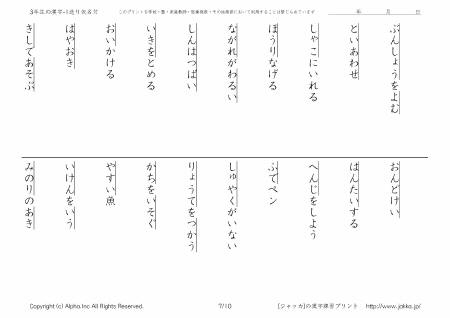 3年生の漢字+送り仮名付
このプリントを学校・塾・家庭教師・医療機関・その他施設において利用することは禁じられています
年 月 日
ぶんしょうをよむ
といあわせ
しゃこにいれる
ほうりなげる
ながれがわるい
しんはつばい
いきをとめる
おいかける
はやおき
きしてあそぶ
おんどけい
はんたいする
へんじをしよう
ふでペン
しゅやくがいない
りょうてをつかう
かちをいそぐ
やすい魚
いけんをいう
みのりのあき
Copyright (c) Alpha.Inc All Rights Reserved.
7/10
[ジャッカ]の漢字練習プリント http://www.jakka.jp/